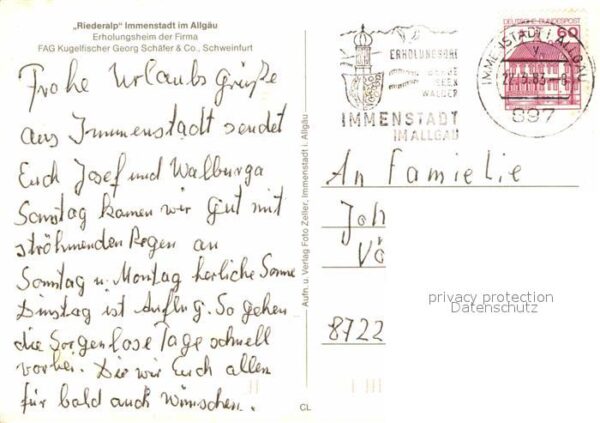 „Riederalp" Immenstadt im Allgäu
Erholungsheim der Firma
FAG Kugelfischer Georg Schäfer & Co., Schweinfurt
Frohe Urlaubs grüße
aus Immenstadt sendet
Euch Josef und Walburga
Samstag kamen wir gut mit
ströhmenden Regen an
Sonntag u. Montag herliche Sonne
Dinstag ist Ausflug. So gehen
die Sorgenlose Tage schnell
vorbei. Die wir Euch allen
für bald auch wünschen.
CL
Aufn. u. Verlag Foto Zeller, Immenstadt i. Allgäu
ERHOLUNGSORT
BERGE
SEEN
WÄLDER
IMMENSTADT
IM ALLGÄU
DEUTSCHE BUNDESPOST
60
IMMENSTADT i. ALLGÄU
v
22.3.83 - 8
897
An Familie
Joh
Vö
8722
privacy protection
Datenschutz